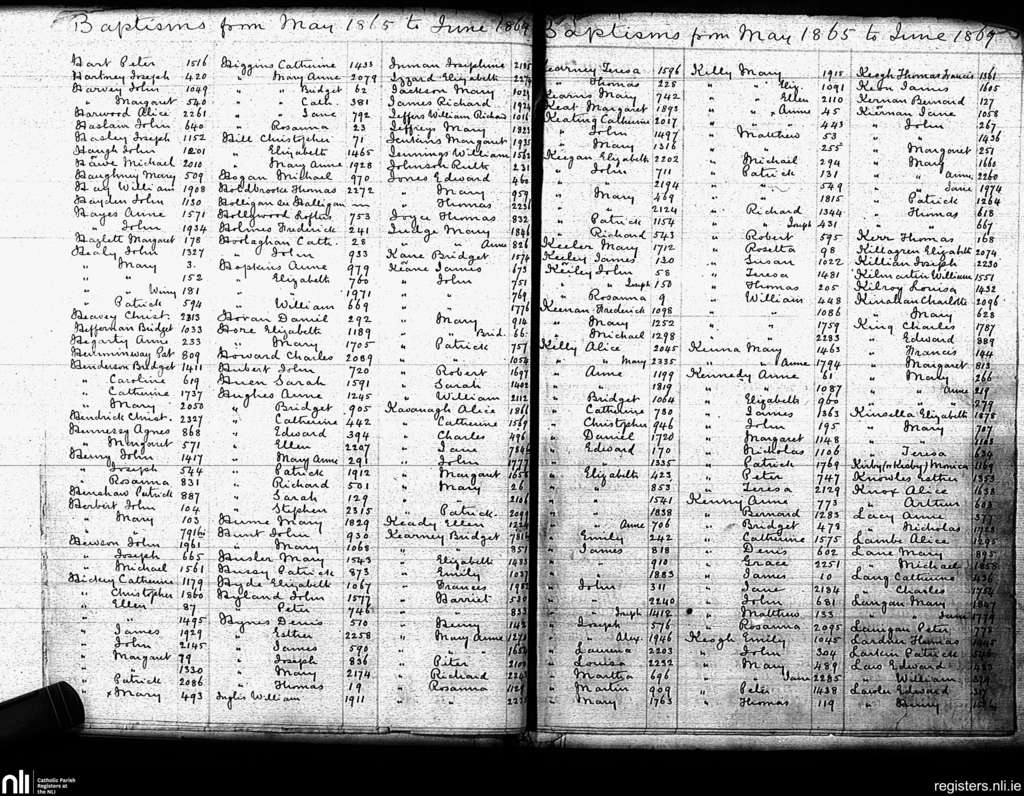 Baptisms from May 1865 to June 1869
Hart Peter 1516
Hartney Joseph 420
Harvey John 1049
" Margaret 540
Harwood Alice 2261
Haslam John 640
Hasley Joseph 1152
Haugh John 1201
Hawe Michael 2010
Haughney Mary 509
Hay William 1908
Hayden John 1130
Hayes Anne 1571
" John 1934
Hazlett Margaret 178
Healy John 1327
" Mary 3
" " 152
" Winy 181
" Patrick 594
Heavey Christ. 2313
Heffernan Bridget 1033
Hegarty Anne 233
Hemminway Pat 809
Henderson Bridget 1411
" Caroline 619
" Catherine 1737
" Mary 2050
Hendrick Christ. 2327
Hennessy Agnes 868
" Margaret 571
Henry John 1417
" Joseph 544
" Rosanna 831
Henshaw Patrick 887
Herbert John 104
" Mary 103
" "
Hewson John 1961
" Joseph 665
" Michael 1561
Hickey Catherine 1179
" Christopher 1860
" Ellen 87
" " 1495
" James 1929
" John 2145
" Margaret 79
" " 1330
" Patrick 2086
" Mary 493
Higgins Catherine 1433
" Mary Anne 2079
" Bridget 62
" Cath. 381
" Jane 792
" Rosanna 23
Hill Christopher 71
" Elizabeth 1465
" Mary Anne 1928
Hogan Michael 970
Holdbrooke Thomas 2272
Holligan see Halligan
Hollywood Loftus 753
Holmes Frederick 241
Hoolaghan Cath. 28
" John 933
Hopkins Anne 979
" Elizabeth 760
" " 1971
" William 669
Horan Daniel 292
Hore Elizabeth 1189
" Mary 1705
Howard Charles 2089
Hubert John 720
Huen Sarah 1591
Hughes Anne 1245
" Bridget 905
" Catherine 442
" Edward 394
" Ellen 2207
" Mary Anne 291
" Patrick 1912
" Richard 501
" Sarah 129
" Stephen 2315
Hume Mary 1829
Hunt John 930
" Mary 1068
Husler Mary 1543
Hussy Patrick 873
Hyde Elizabeth 1067
Hyland John 1577
" Peter 746
Hynes Denis 570
" Esther 2258
" James 590
" Joseph 836
" Mary 2174
" Thomas 19
Inglis William 1911
Inman Josephine
Izzard Elizabeth
Jackson Mary 1029
James Richard 1924
Jeffers William Richard 1016
Jeffreys Mary 1323
Jenkins Margaret 1935
Jennings William 1562
Johnson Ruth 231
Jones Edward 460
" Mary 959
" Thomas 2231
Joyce Thomas 832
Judge Mary 1846
" Anne 826
Kane Bridget 1574
Keane James 673
" John 751
" " 769
" " 1776
" Mary 914
" Brid. 66
" Patrick 757
" " 1054
" Robert 1697
" Sarah 1402
" William 2112
Kavanagh Alice
" Catherine 1569
" Charles 496
" Jane
" John 1773
" Margaret
" Mary 26
" "
" Patrick
Keady Ellen
Kearney Bridget
" " 851
" Elizabeth
" Emily
" Francis
" Harriet
" " 833
" Henry
" Mary Anne
" "
" Peter
" Richard
" Rosanna
" "
Baptisms from May 1865 to June 1869
Kearney Teresa 1596
" Thomas 228
Kearns Mary 742
Keat Margaret 1893
Keating Catherine 2017
" John 1497
" Mary 1316
Keegan Elizabeth 2202
" John 711
" " 2194
" Mary 469
" " 2124
" Patrick 1154
" Richard 543
Keeler Mary 1712
Keeley James 130
Keiley John 58
" Joseph 150
" Rosanna 9
Keenan Frederick 1098
" Mary 1252
" Michael 1298
Kelly Alice 2045
" Mary 2335
" Anne 1199
" " 1819
" Bridget 1064
" Catherine 730
" Christopher 946
" Daniel 1720
" Edward 170
" " 1335
" Elizabeth 423
" " 853
" " 1541
" " 1838
" Anne 706
" Emily 242
" James 818
" " 910
" " 1883
" John 311
" " 2240
" Joseph 1412
" Joseph 576
" Alex. 1946
" Laurence 2203
" Louisa 2232
" Martha 696
" Martin 909
" Mary 1763
Kelly Mary 1915
" " Eliz. 1091
" " Ellen 2110
" " Anne 45
" " 443
" Matthew 53
" " 255
" Michael 294
" Patrick 131
" " 549
" " 1815
" Richard 1344
" " Joseph 431
" Robert 595
" Rosetta 98
" Susan 1022
" Teresa 1481
" Thomas 205
" William 448
" " 1086
" " 1759
" " 2283
Kenna Mary 1463
" " Anne 1794
Kennedy Anne 61
" " 1087
" Elizabeth 960
" James 1363
" John 195
" Margaret 1148
" Nicholas 1106
" Patrick 1769
" Peter 747
" Teresa 2129
Kenny Anne 773
" Bernard 1283
" Bridget 479
" Catherine 1575
" Denis 602
" Grace 2251
" James 10
" Jane 2184
" John 681
" Matthew 133
" Rosanna 2095
Keogh Emily 1045
" John 304
" Mary 489
" " Jane 2285
" Peter 1438
" Thomas 119
Keogh Thomas Francis 1361
Keon James 1605
Kernan Bernard 127
Kiernan Jane 1058
" John 267
" " 1436
" Margaret 257
" Mary 1660
" " Anne 2260
" " Jane 1974
" Patrick 1264
" Thomas 618
" " 667
Kerr Thomas 168
Killagree Elizabeth 2074
Killian Joseph 2230
Kilmartin William 1551
Kilroy Louisa 1432
Kinahan Charlotte 2096
" Mary 628
King Charles 1787
" Edward 889
" Francis 144
" Margaret 813
" Mary 266
" " Anne 219
" " 279
Kinsella Elizabeth 1878
" Mary 717
" "
" Teresa 634
Kirby (or Kisby) Monica 1169
Knowles Esther 1353
Knox Alice 1638
" Arthur 603
Lacy Anne 37
" Nicholas
Lambe Alice 1295
Lane Mary 895
" Michael 1858
Lang Catherine 436
" Charles
Langan Mary 1847
" Jane 1779
Lanigan Peter 778
Lardner Thomas
Larkin Patrick
Law Edward
" William
Lawler Edward
" Henry
nli
Catholic Parish
Registers at
the NLI
registers.nli.ie